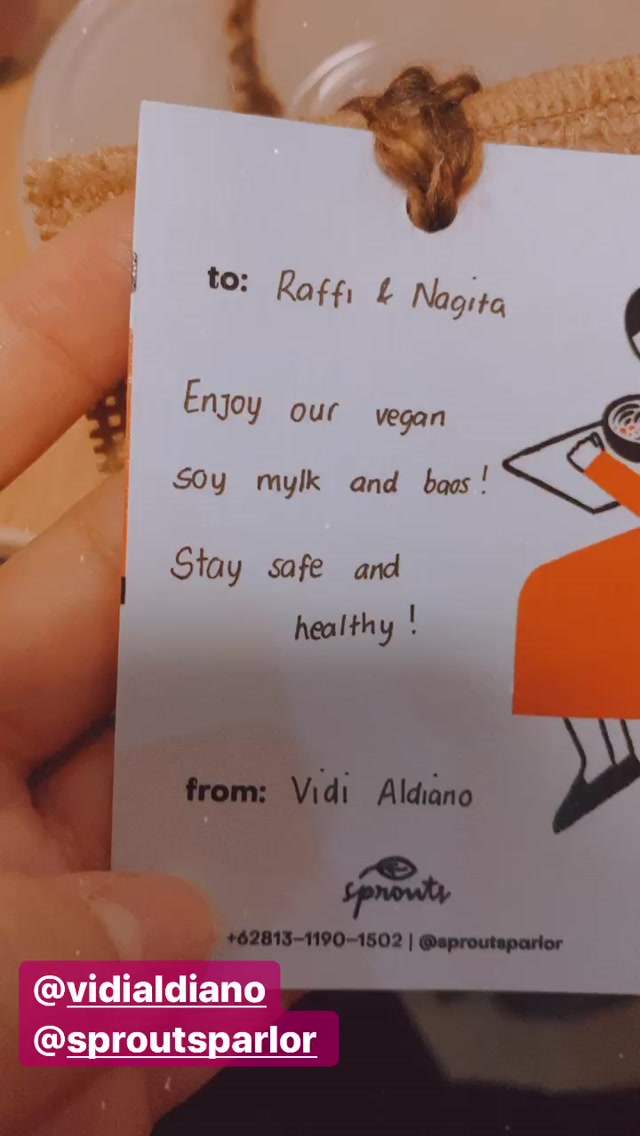 to: Raffi & Nagita
Enjoy our vegan
soy mylk and baos!
Stay safe and
healthy!
from: Vidi Aldiano
sprouts
+62813-1190-1502 | @sproutsparlor
@vidialdiano
@sproutsparlor